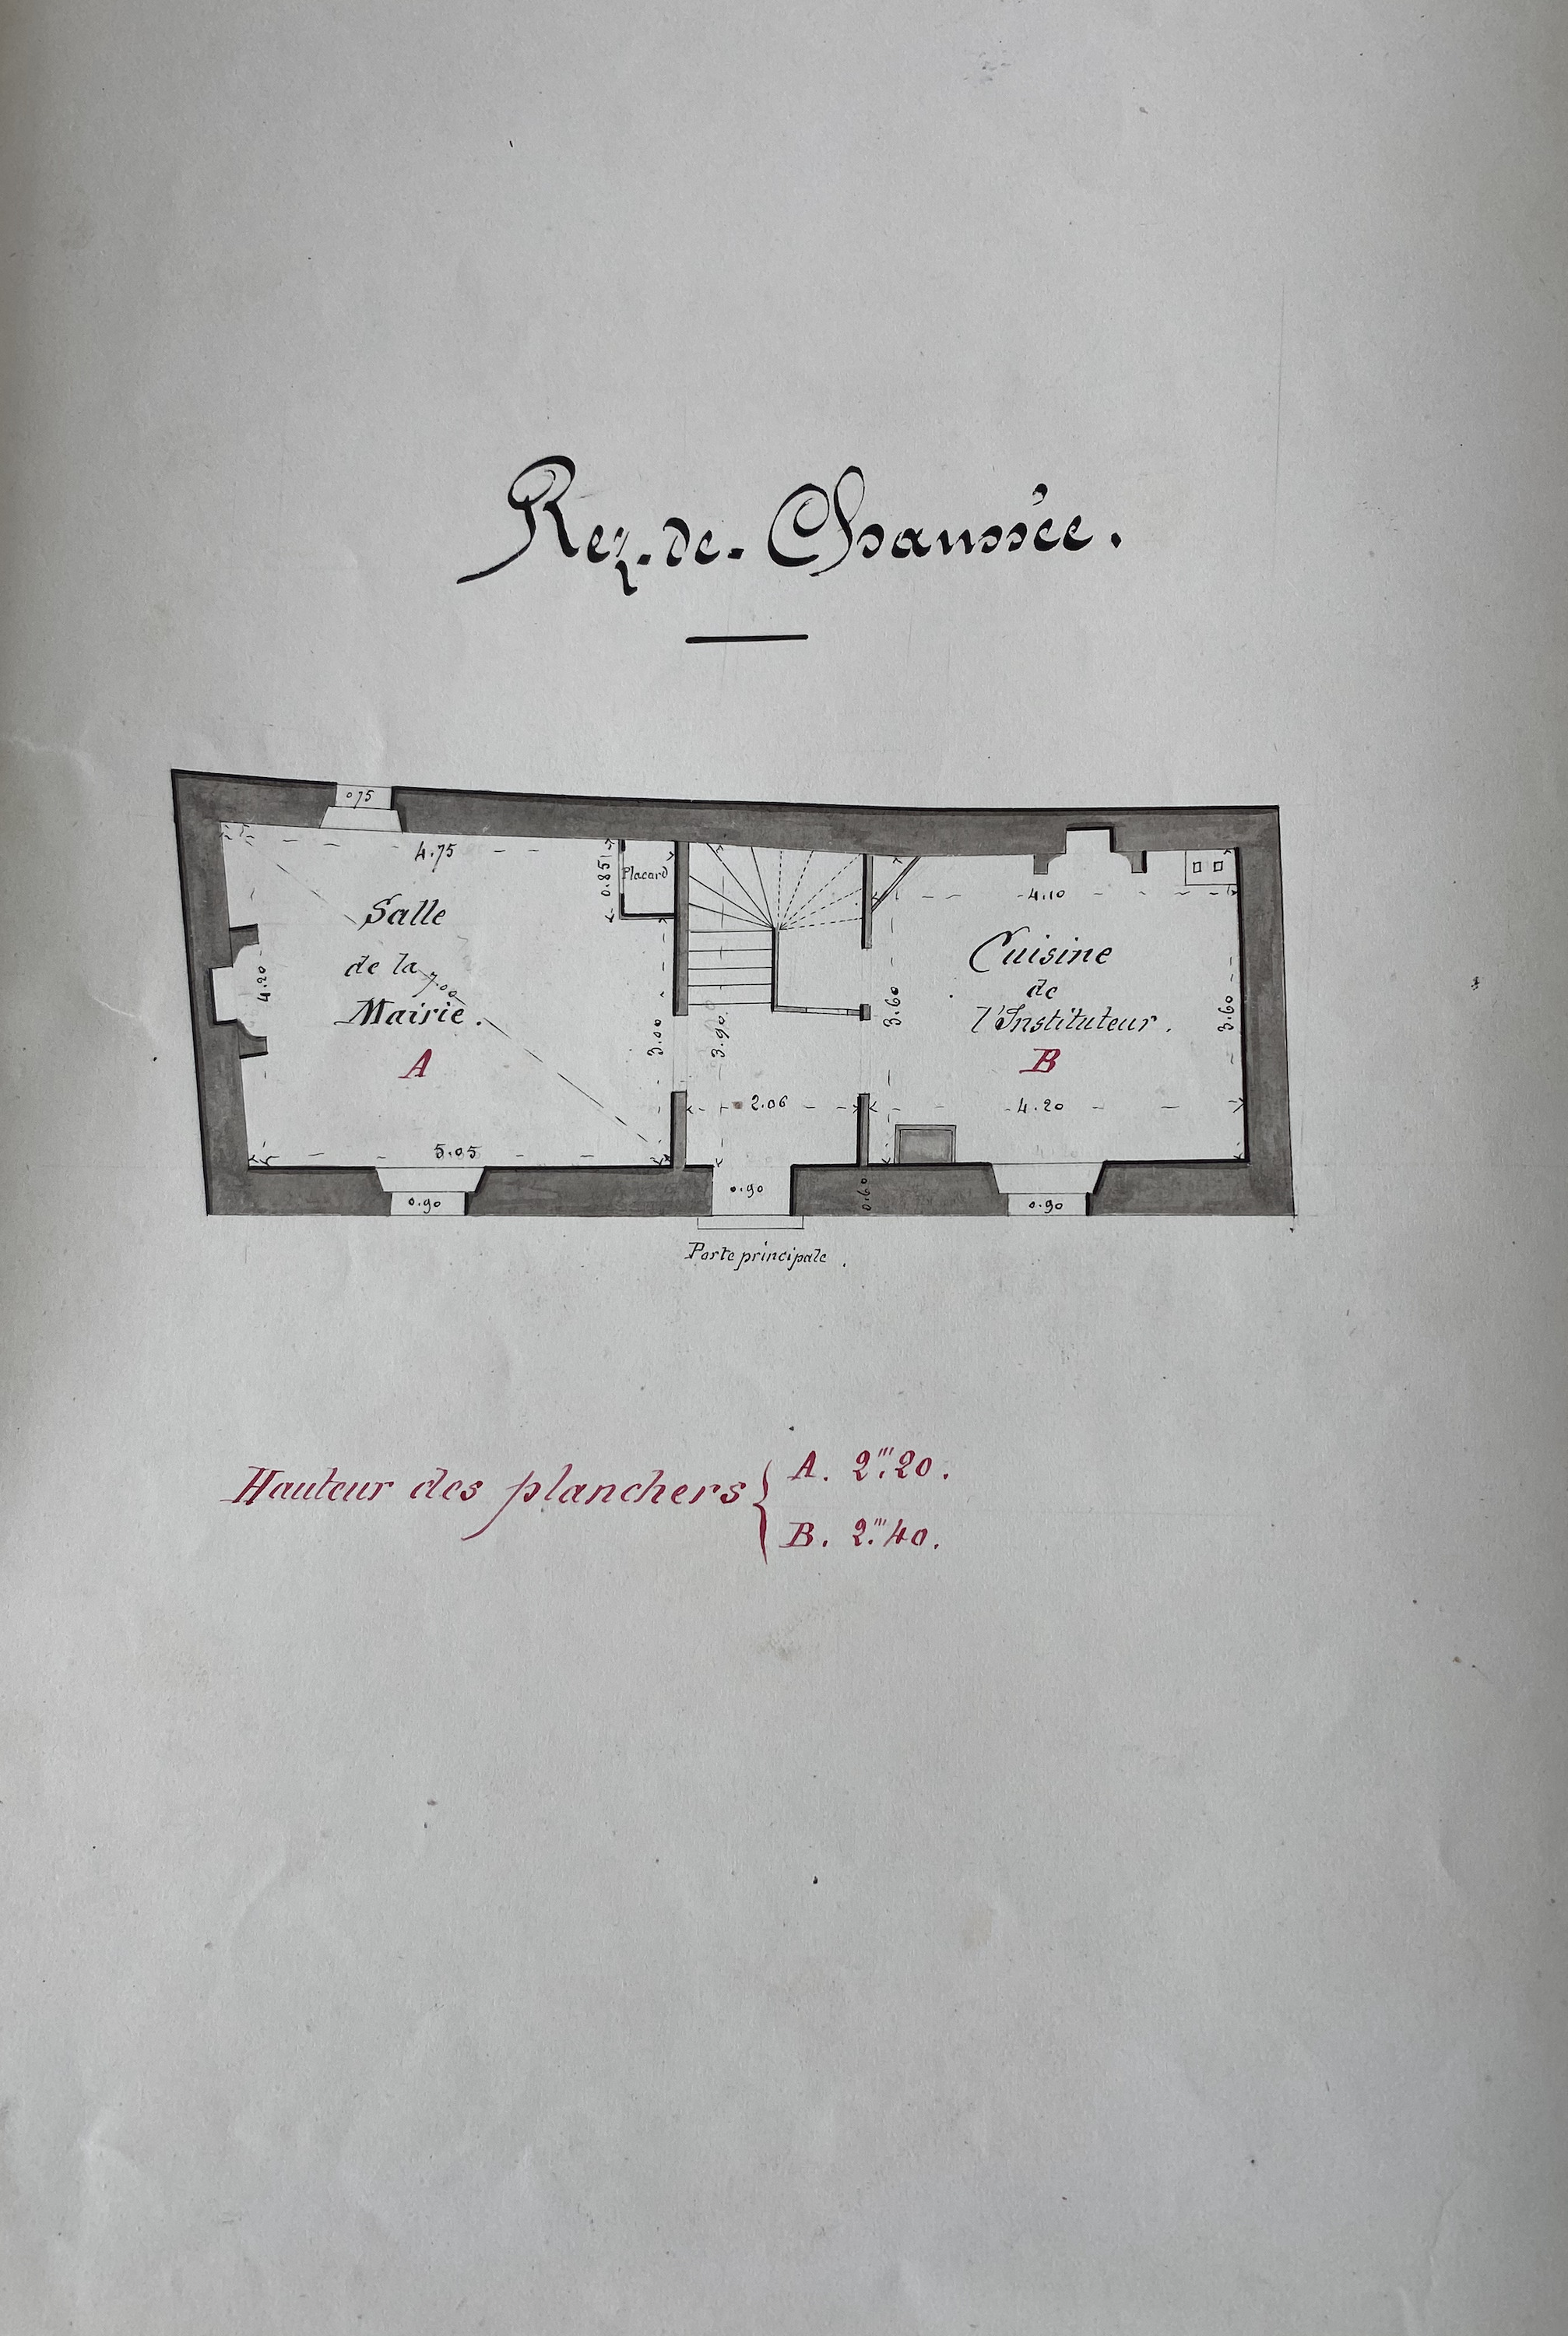 Rez-de-Chaussée.
0.75
4.75
0.85
Placard
Salle
de la
Mairie.
A
7.00
4.20
3.00
3.90
2.06
5.05
4.10
Cuisine
de
l'Instituteur.
B
3.60
3.60
4.20
0.90
0.90
0.60
0.90
Porte principale.
Hauteur des planchers
A. 2m.20.
B. 2m.40.